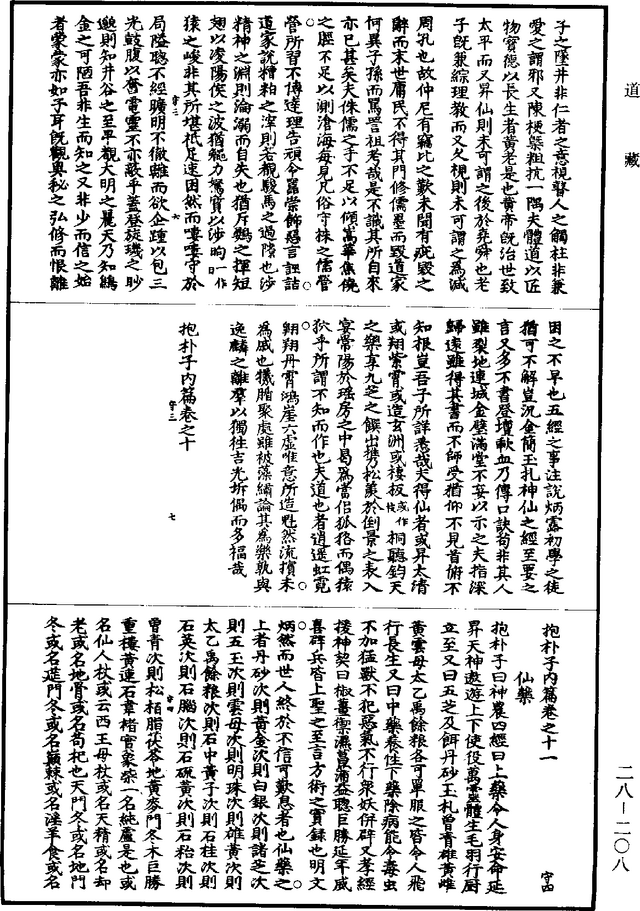 道藏
子之墜井非仁者之意視瞽人之觸柱非兼
愛之謂邪又陳梗槩粗抗一隅夫體道以匠
物寳德以長生者黃老是也黃帝旣治世致
太平而又昇仙則未可謂之後於堯舜也老
子旣兼綜禮教而又久視則未可謂之爲減
周孔也故仲尼有竊比之歎未聞有疵毀之
辭而末世庸民不得其門修儒墨而毀道家
何異子孫而罵詈祖考哉是不識其所自來
亦已甚矣夫侏儒之手不足以傾嵩華焦僥
之脛不足以測滄海每見凡俗守株之儒營
營所習不博達理告頑令嚚崇飾惡言誣詰
道家說糟粕之滓則若覩駿馬之過隙也涉
精神之淵則淪溺而自失也猶斥鷃之揮短
翅以凌陽侯之波猶蠅力駑質以涉昫一作
猿之峻非其所堪秪足速困然而嘍嘍守於
局隘聦不經曠明不徹離而欲企踵以包三
光鼓腹以奮雷靈不亦蔽乎蓋登旋璣之眇
邈則知井谷之至卑覩大明之麗天乃知鷦
金之可陋吾非生而知之又非少而信之始
者蒙蒙亦如子耳旣觀奥秘之弘修而恨離
守三 六
困之不早也五經之事注說炳露初學之徒
猶可不解豈況金簡玉札神仙之經至要之
言又多不書登壇歃血乃傳口訣苟非其人
雖裂地連城金璧滿堂不妄以示之夫指深
歸遠雖得其書而不師受猶仰不見首俯不
知跟豈吾子所詳悉哉夫得仙者或昇太清
或翔紫霄或造玄洲或棲板或作後桐聽鈞天
之樂享九芝之饌出携松羨於倒景之表入
宴常陽於瑶房之中曷爲當侣狐狢而偶猿
狖乎所謂不知而作也夫道也者逍遥虹霓
翺翔丹霄鴻崖六虚唯意所造魁然流擯未
爲戚也犧腯聚處雖被藻繡論其爲樂孰與
逸麟之離羣以獨往吉光坼偶而多福哉
抱朴子内篇卷之十
守三 七
抱朴子内篇卷之十一 守四
仙藥
抱朴子曰神農四經曰上藥令人身安命延
昇天神遨遊上下使役萬靈體生毛羽行厨
立至又曰五芝及餌丹砂玉札曾青雄黃雌
黃雲母太乙禹餘粮各可單服之皆令人飛
行長生又曰中藥養性下藥除病能令毒虫
不加猛獸不犯惡氣不行衆妖併辟又孝經
援神契曰椒薑禦濕菖蒲益聦巨勝延年威
喜辟兵皆上聖之至言方術之實録也明文
炳然而世人終於不信可歎息者也仙藥之
上者丹砂次則黃金次則白銀次則諸芝次
則五玉次則雲母次則明珠次則雄黃次則
太乙禹餘粮次則石中黃子次則石桂次則
石英次則石腦次則石硫黃次則石粭次則
曾青次則松栢脂茯苓地黃麥門冬木巨勝
重樓黃連石韋楮實象柴一名純盧是也或
名仙人杖或云西王母杖或名天精或名却
老或名地骨或名苟杞也天門冬或名地門
冬或名莚門冬或名顛棘或名淫羊食或名
二八—二〇八